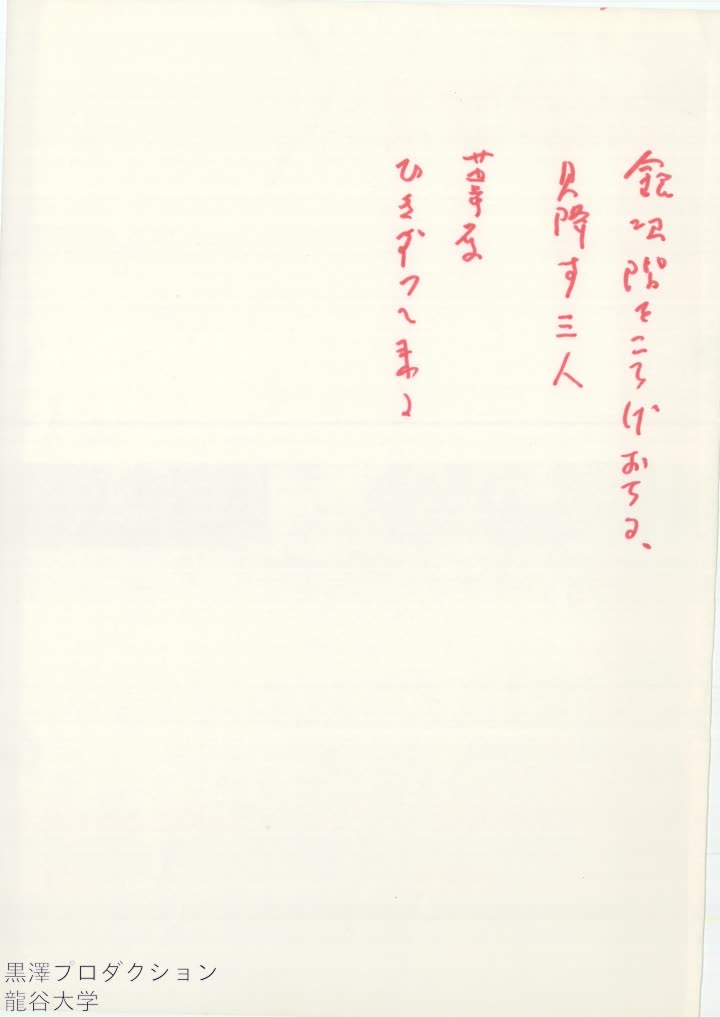 銀次階をころげおちる、
見降す三人
ひきずって来る
黒澤プロダクション
龍谷大学